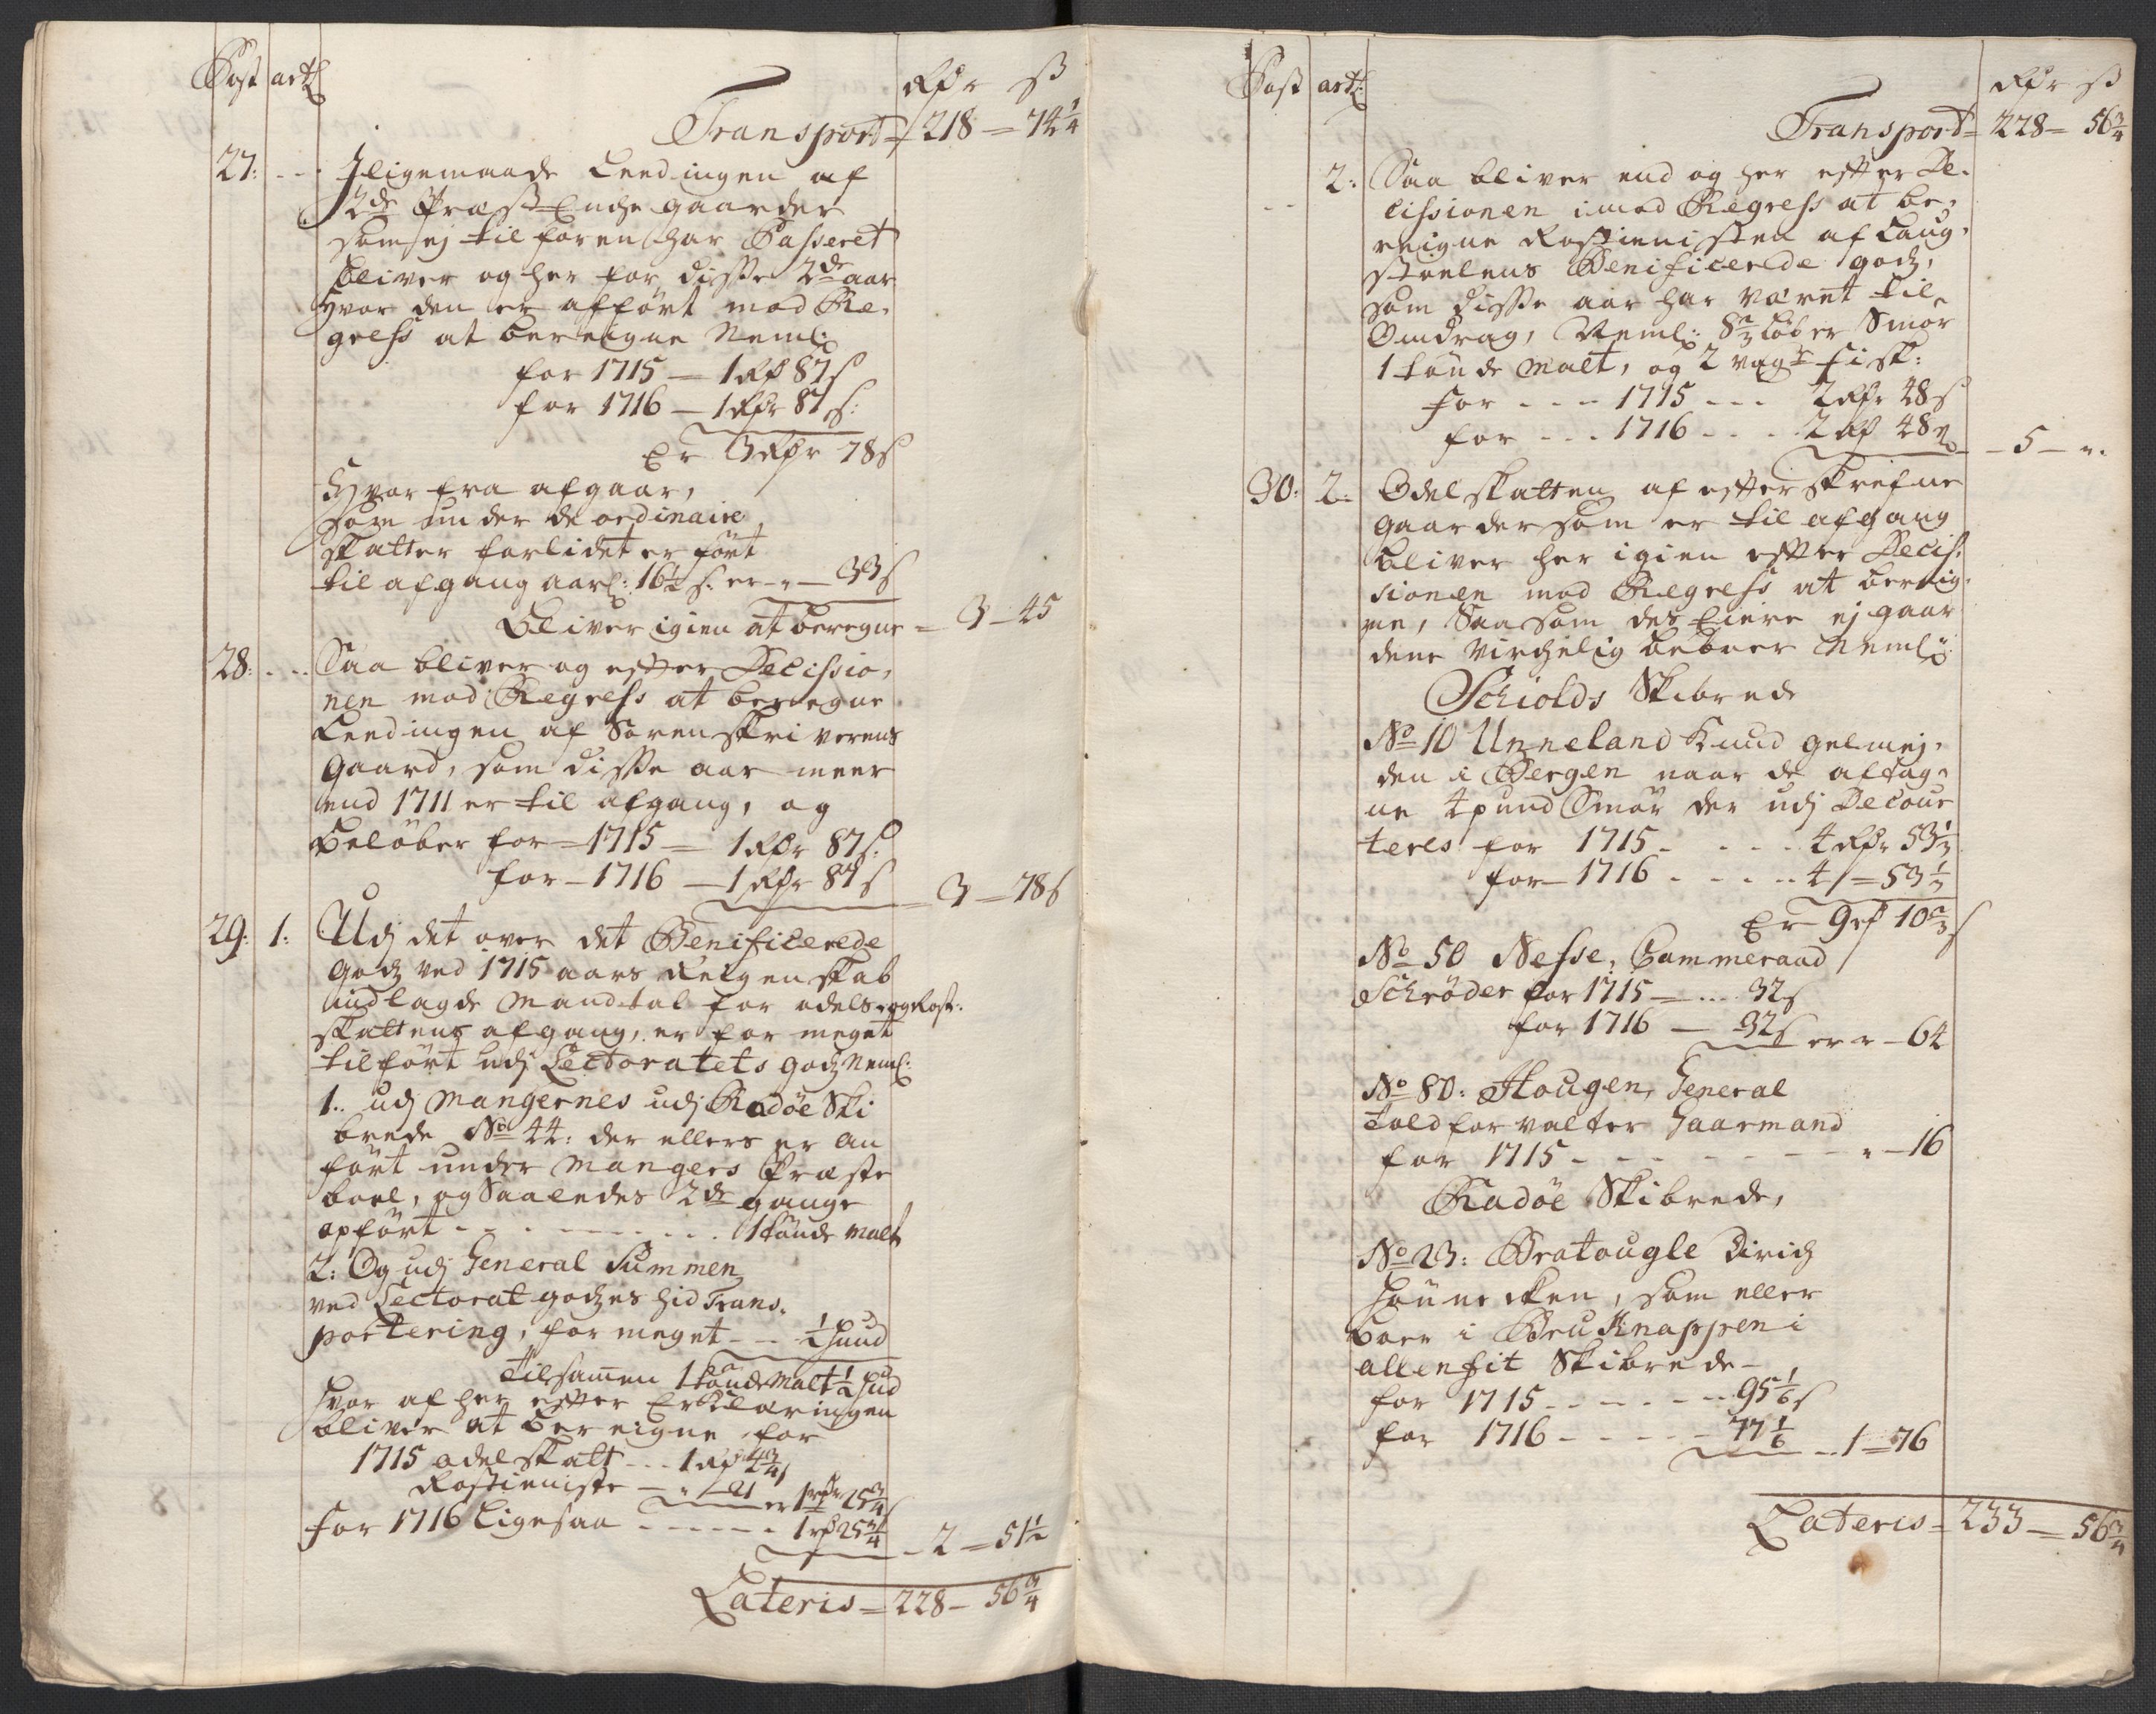 Post artl
Rdr ß
Transport = 218 = 74 1/4
27: - - Jligemaade Leedingen af
2de Præste Enche gaarder
som ej tilforen har Passeret
bliver og her for disse 2de aar
hvor den er affört mod Re-
gress at bereigne Neml:
for 1715 — 1 Rd 87 s
for 1716 — 1 Rdr 87 s:
Er 3 Rdr 78 s
Hvor fra afgaar,
som under de ordinaire
skatter forlidet er fört
til afgang aarl: 16 1/2 s. er - " — 33 s
Bliver igien at beregne = 3 — 45
28: - - Saa bliver og efter Decissio-
nen mod Regress at beregne
Leedingen af Sorenskriverens
Gaard, som disse aar meer
end 1711 er til afgang, og
Belöber for = 1715 — 1 Rdr 87 s:
for — 1716 — 1 Rdr 87 s = 3 — 78 s
29: 1: Udj det over det Benificerede
godz ved 1715 aars Regenskab
indlagde Mandtal for odels og Rost:
skattens afgang, er for meget
tilfört udj Lectoratets godz Neml:
1.. udj Mangernes udj Radöe Ski
brede No 44: der ellers er an
fört under Mangers Præste
boel, og Saaledes 2de gange
opfört - - - - - - 1 tönde Malt
2: Og udj General Summen
ved Lectorat godzes hid Trans-
portering, for meget - - 1/2 Huud
Tilsammen 1 tönde Malt 1/2 Hud
Hvor af her efter Erklæringen
bliver at bereigne for
1715 odelskatt - - 1 Rd 4 3/4
Rostieniste — " 21 er 1 Rdr 25 3/4
for 1716 Ligesaa - - - - - 1 rd 25 3/4 s - 2 = 51 1/2
Lateris = 228 — 56 3/4
Post artl:
Rdr ß
Transport = 228 = 56 3/4
2: Saa bliver end og her efter De-
cissionen imod Regress at be-
reigne Rostienisten af Laug-
stoelens Benificerede godz,
som disse aar har været til
Omdrag, Neml: 8 2/3 Löber Smör
1 tönde Malt, og 2 vager fisk:
for - - - 1715 - - - 2 Rdr 48 s
for - - - 1716 - - - 2 Rd 48 s - 5 — "
30: 2: Odelskatten af efterskrefne
gaarder som er til afgang
bliver her igien efter Decis-
sionen mod Regress at bereig-
ne, Saasom des Eiere ej gaar
dene virchelig beboer Neml:
Schiolds Skibrede
No 10 Unneland Knud gelmej-
den i Bergen naar de aftag-
ne 4 pund Smör der udj Decour
teres for 1715 - - - - 4 Rdr 53 1/3
for — 1716 - - - - 4 = 53 1/3
Er 9 rd 10 2/3 s
No 50 Nesse, Cammeraad
Schröder for 1715 — .. 32 s
for 1716 — 32 s er " — 64
No 80: Hougen, General
toldforvalter Gaarmand
for 1715 - - - - - - - " — 16
Radöe Skibrede,
No 23: Bratougle Dirich
Hönecken, som eller
boer i Bru Knappen i
allenfit Skibrede —
for 1715 - - - - - 95 1/6 s
for 1716 - - - - - 77 1/6 - 1 = 76
Lateris = 233 = 56 3/4